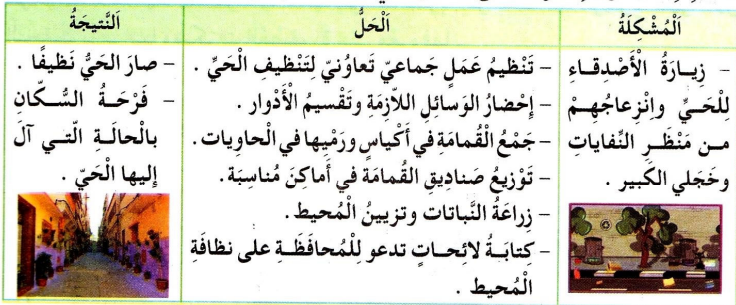 اَلْمُشْكِلَةُ
– زِيـارَةُ الْأَصْدِقـاءِ
لِلْحَـيِّ وانْزِعاجُهِـمْ
مـن مَنْظَـرِ النِّفايات
وخَجَلي الكَبير .
اَلْحَلُّ
– تَنْظيمُ عَمَلٍ جَماعيّ تَعاوُنيّ لِتَنْظيفِ الْحَيِّ .
– إحْضارُ الوَسائِلِ اللاّزِمَةِ وتَقْسيمُ الْأَدْوار .
– جَمْعُ الْقُمامَةِ في أَكْياسٍ ورَمْيها في الْحاوِيات .
– تَوْزيعُ صَناديقِ القُمامَة في أَماكِنَ مُناسِبَة .
– زِراعَةُ النَّباتات وتزيينُ الْمُحيط .
– كِتابَـةُ لائِحـاتٍ تدعو لِلْمُحافَظَـةِ على نظافَةِ
الْمُحيط .
اَلنَّتيجَةُ
– صارَ الحَيُّ نَظيفًا .
– فَرْحَـةُ السُّـكّانِ
بالْحالَـةِ الّتـي آل
إليها الْحَيّ .